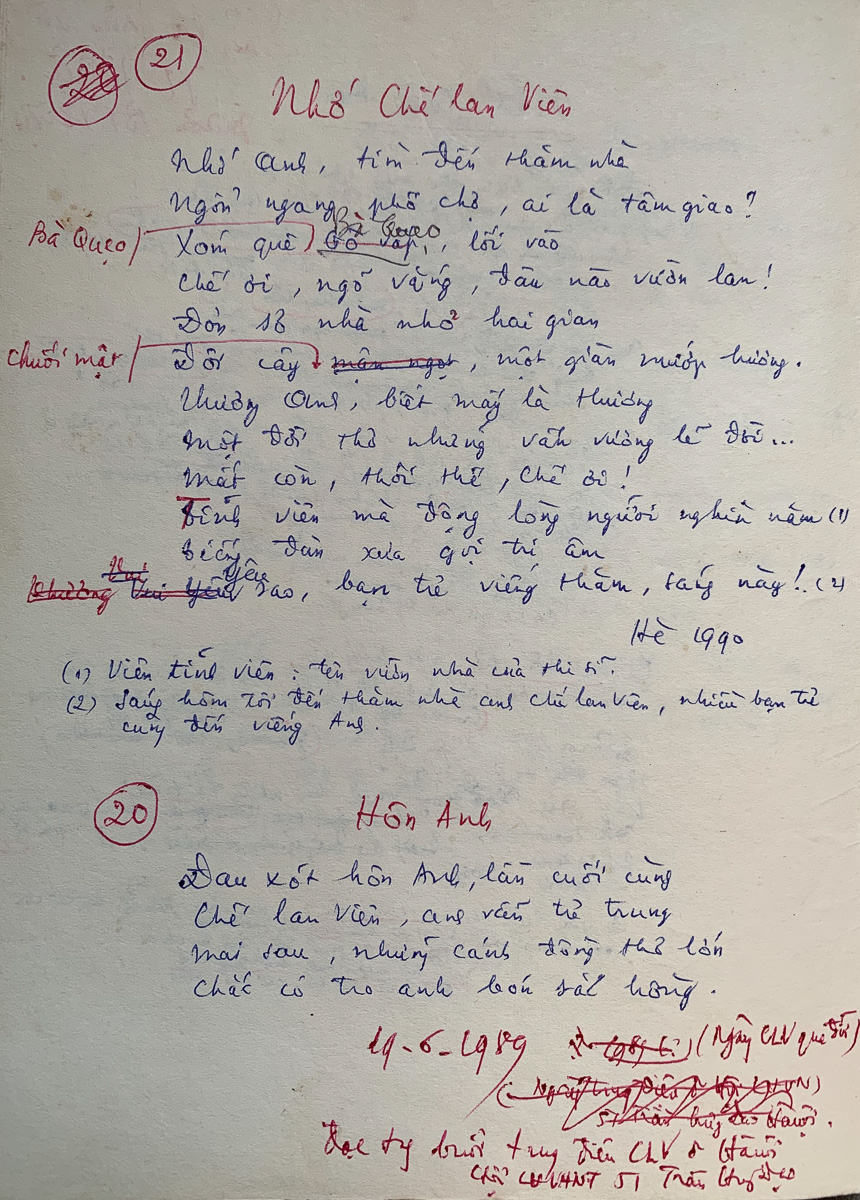 21
Nhớ Chế Lan Viên
Nhớ Anh, tìm đến thăm nhà
Ngổn ngang phố chợ, ai là tâm giao?
Bà Quẹo Xóm quê Gò Vấp, Bà Quẹo, lối vào
Chế ơi, ngõ vắng, đâu nào vườn lan!
Đơn sơ nhà nhỏ hai gian
Chuối mật Đôi cây mận ngọt, một giàn mướp hương.
Thương Anh, biết mấy là thương
Một đời thơ những vấn vương lẽ đời...
Mất còn, thôi thế, Chế ơi!
Tĩnh viên mà động lòng người nghìn năm (1)
Tiếng đàn xưa gọi tri âm
Yêu sao, bạn trẻ viếng thăm, sáng này! (2)
Hè 1990
(1) Viên tĩnh viên: tên vườn nhà của thi sĩ.
(2) Sáng hôm tôi đến thăm nhà anh Chế Lan Viên, nhiều bạn trẻ
cùng đến viếng Anh.
20
Hôn Anh
Đau xót hôn Anh, lần cuối cùng
Chế Lan Viên, anh vẫn trẻ trung
Mai sau, những cánh đồng thơ lớn
Chắc có tro anh bón sắc hồng.
19-6-1989 (Ngày CLV qua đời)
51 Trần Hưng Đạo Hà Nội.
Đọc tại buổi truy điệu CLV ở Hà Nội
51 Trần Hưng Đạo